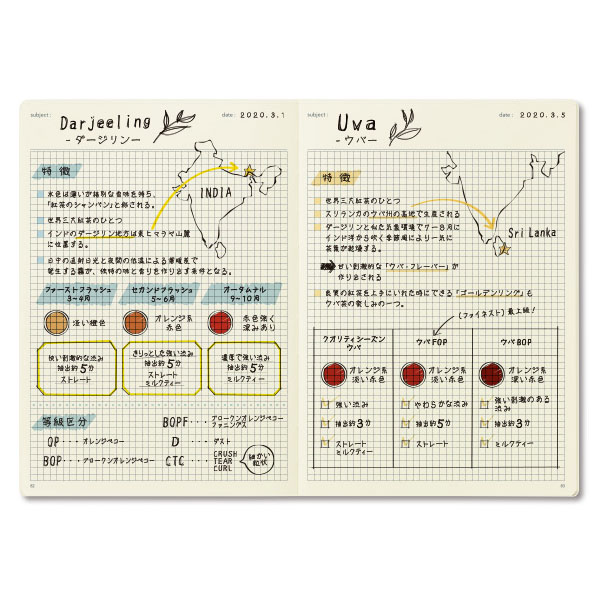 subject:
Darjeeling
-ダージリン-
date: 2020.3.1
特徴
水色は薄いが格別な香味を持ち、
「紅茶のシャンパン」と称される。
世界三大紅茶のひとつ
インドのダージリン地方は東ヒマラヤ山麓
に位置する。
日中の直射日光と夜間の低温による寒暖差で
発生する霧が、独特の味と香りを作り出す条件となる。
INDIA
ファーストフラッシュ
3~4月
セカンドフラッシュ
5~6月
オータムナル
9~10月
淡い橙色
オレンジ系
赤色
赤色強く
深みあり
快い刺激的な渋み
抽出約5分
ストレート
きりっとした強い渋み
抽出約5分
ストレート
ミルクティー
濃厚で強い渋み
抽出約5分
ミルクティー
等級区分
OP・・・オレンジペコー
BOP・・・ブロークンオレンジペコー
BOPF・・・ブロークンオレンジペコー
ファニングス
D・・・ダスト
CTC・・・CRUSH
TEAR
CURL
細かい
粒状
82
subject:
Uwa
-ウバ-
date: 2020.3.5
特徴
世界三大紅茶のひとつ
スリランカのウバ州の高地で生産される
ダージリンと似た気象環境で7~8月に
インド洋から吹く季節風により一気に
茶葉が乾燥する。
甘い刺激的な「ウバ・フレーバー」が
作り出される
良質の紅茶を上手にいれた時にできる「ゴールデンリング」も
ウバ茶の楽しみの一つ。
Sri Lanka
(ファイネスト)最上級!
クオリティシーズン
ウバ
オレンジ系
淡い赤色
強い渋み
抽出約3分
ストレート
ミルクティー
ウバFOP
オレンジ系
淡い赤色
やわらかな渋み
抽出約5分
ストレート
ウバBOP
オレンジ系
深い赤色
強い刺激のある
渋み
抽出約3分
ミルクティー